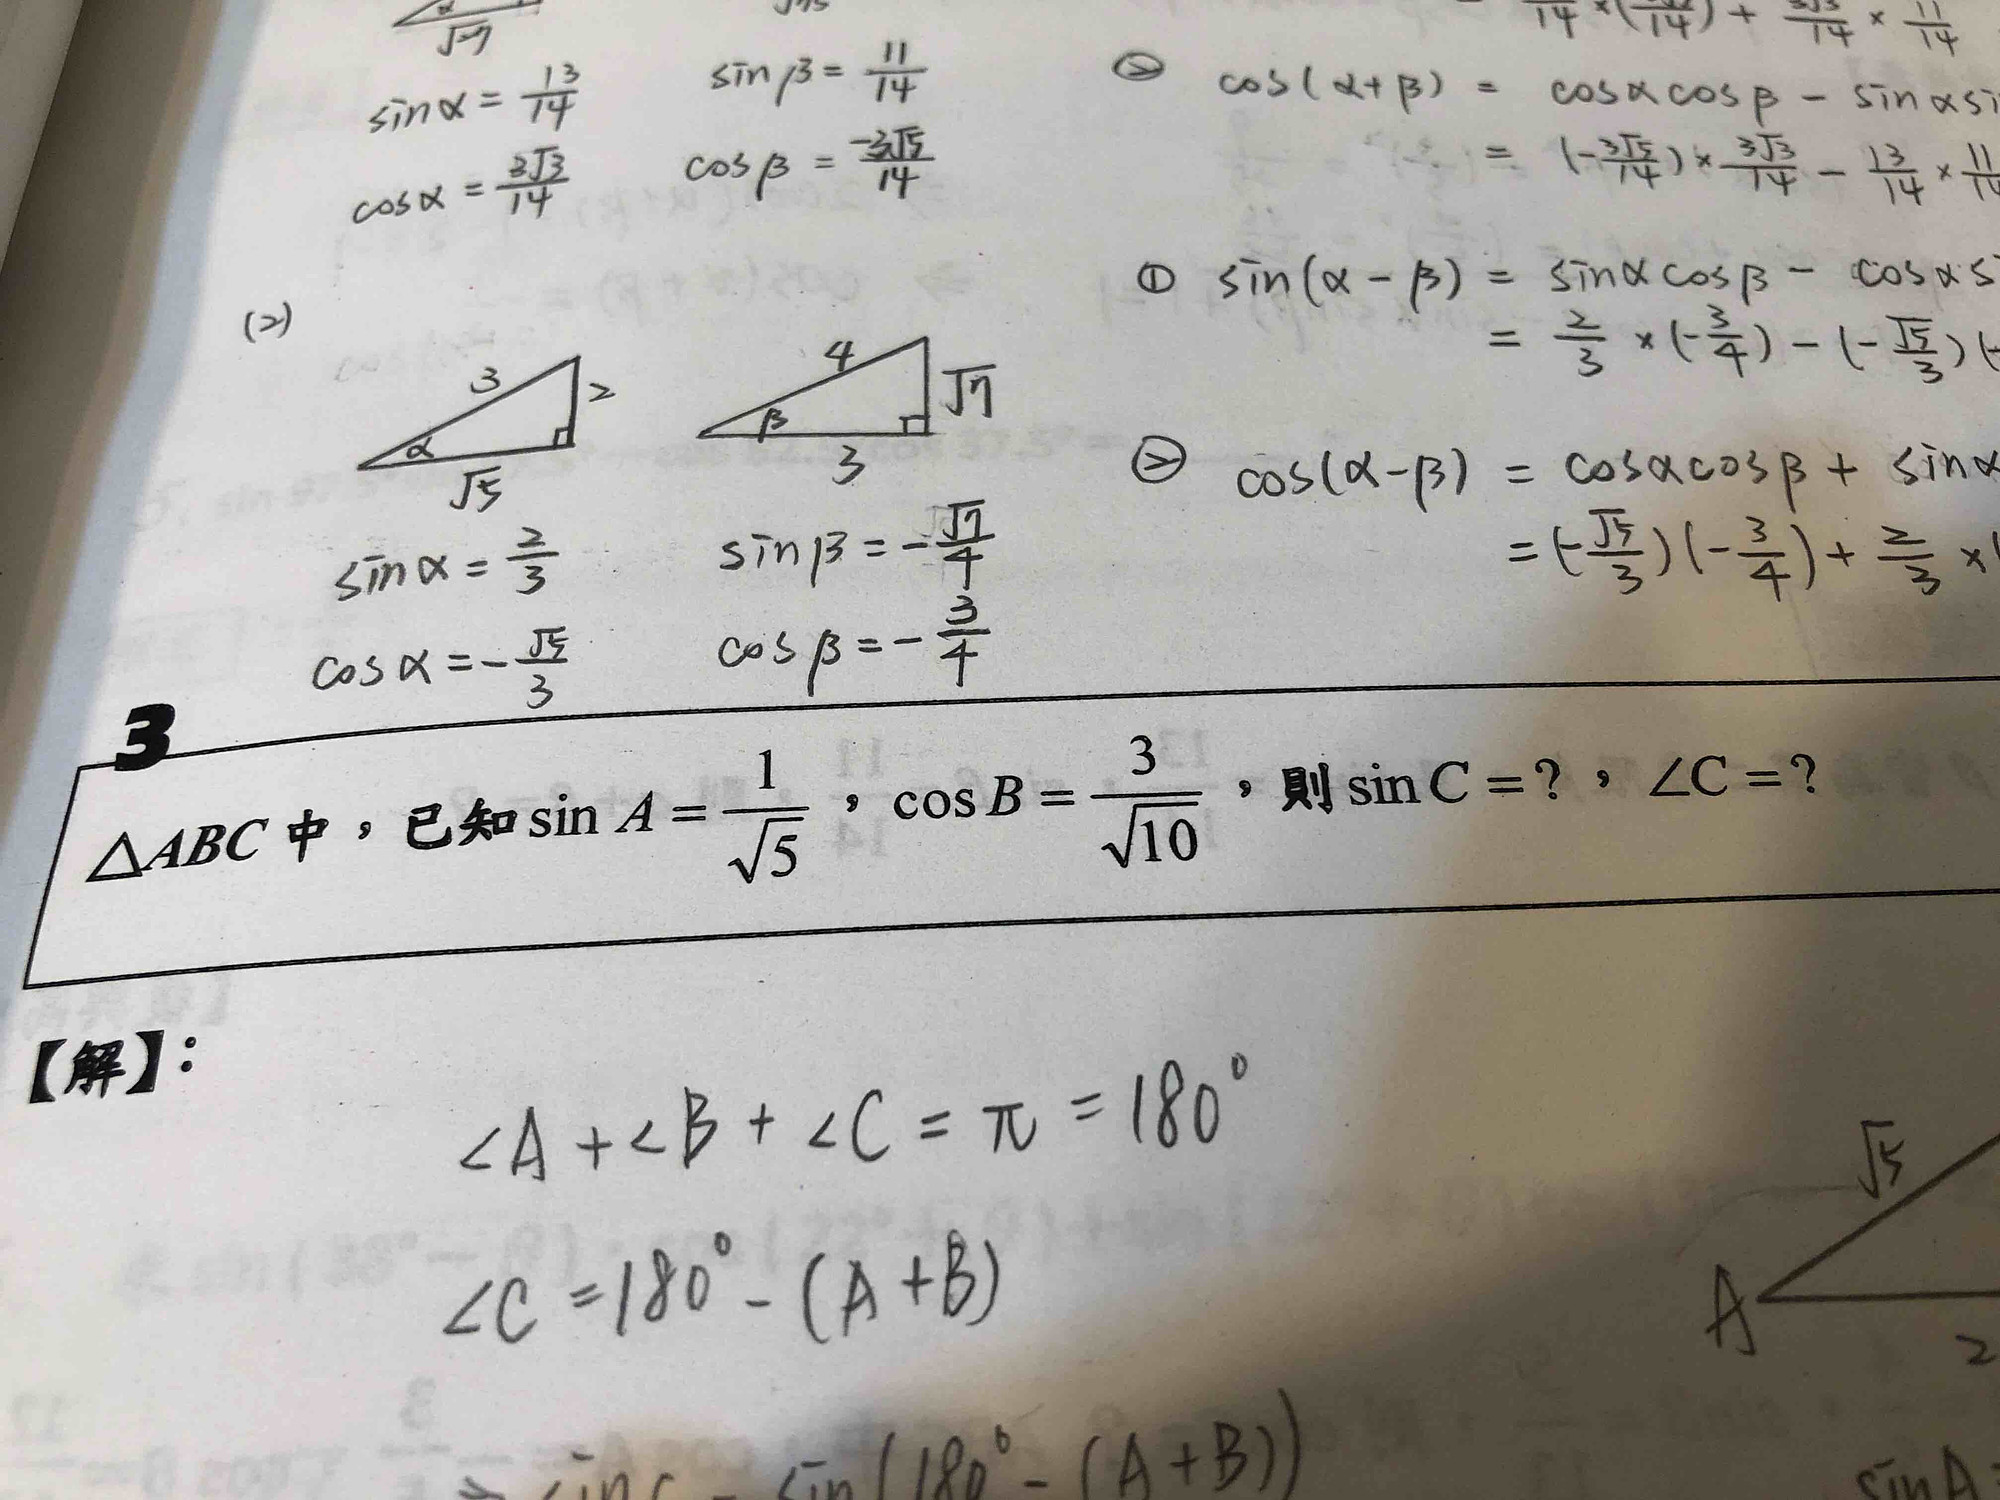 √7
sinα = 13/14
cosα = 3√3/14
sinβ = 11/14
cosβ = -3√5/14
② cos(α+β) = cosαcosβ - sinα
= (-3√5/14) × 3√3/14 - 13/14 × 11
(2)
3
2
α
√5
4
√7
β
3
sinα = 2/3
cosα = -√5/3
sinβ = -√7/4
cosβ = -3/4
① sin(α-β) = sinαcosβ - cosα
= 2/3 × (-3/4) - (-√5/3)(-
② cos(α-β) = cosαcosβ + sinα
= (-√5/3)(-3/4) + 2/3 × (
3
△ABC 中，已知 sin A = 1/√5，cos B = 3/√10，則 sin C = ?，∠C = ?
【解】：
∠A + ∠B + ∠C = π = 180°
∠C = 180° - (A + B)
sin(180° - (A + B))
√5
A
2
sin A